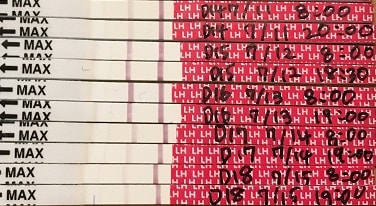 MAX LH D14 7/11 8:00
MAX LH D14 7/11 20:00
MAX LH D15 7/12 8:00
MAX LH D15 7/12 19:30
MAX LH D16 7/13 8:00
MAX LH D16 7/13 19:00
MAX LH D17 7/14 8:00
MAX LH D17 7/14 19:00
MAX LH D18 7/15 8:00
MAX LH D18 7/15 19:00